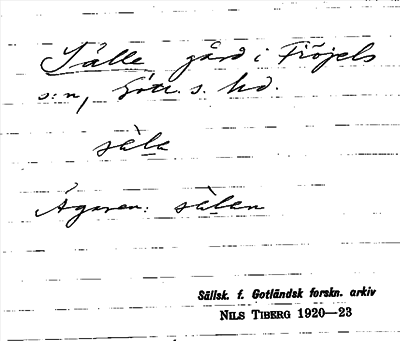 Sälle gård i Fröjels
s:n, Gotl. s. hd.
sèla
Ägaren: sèlan
Sällsk. f. Gotländsk forskn. arkiv
NILS TIBERG 1920—23